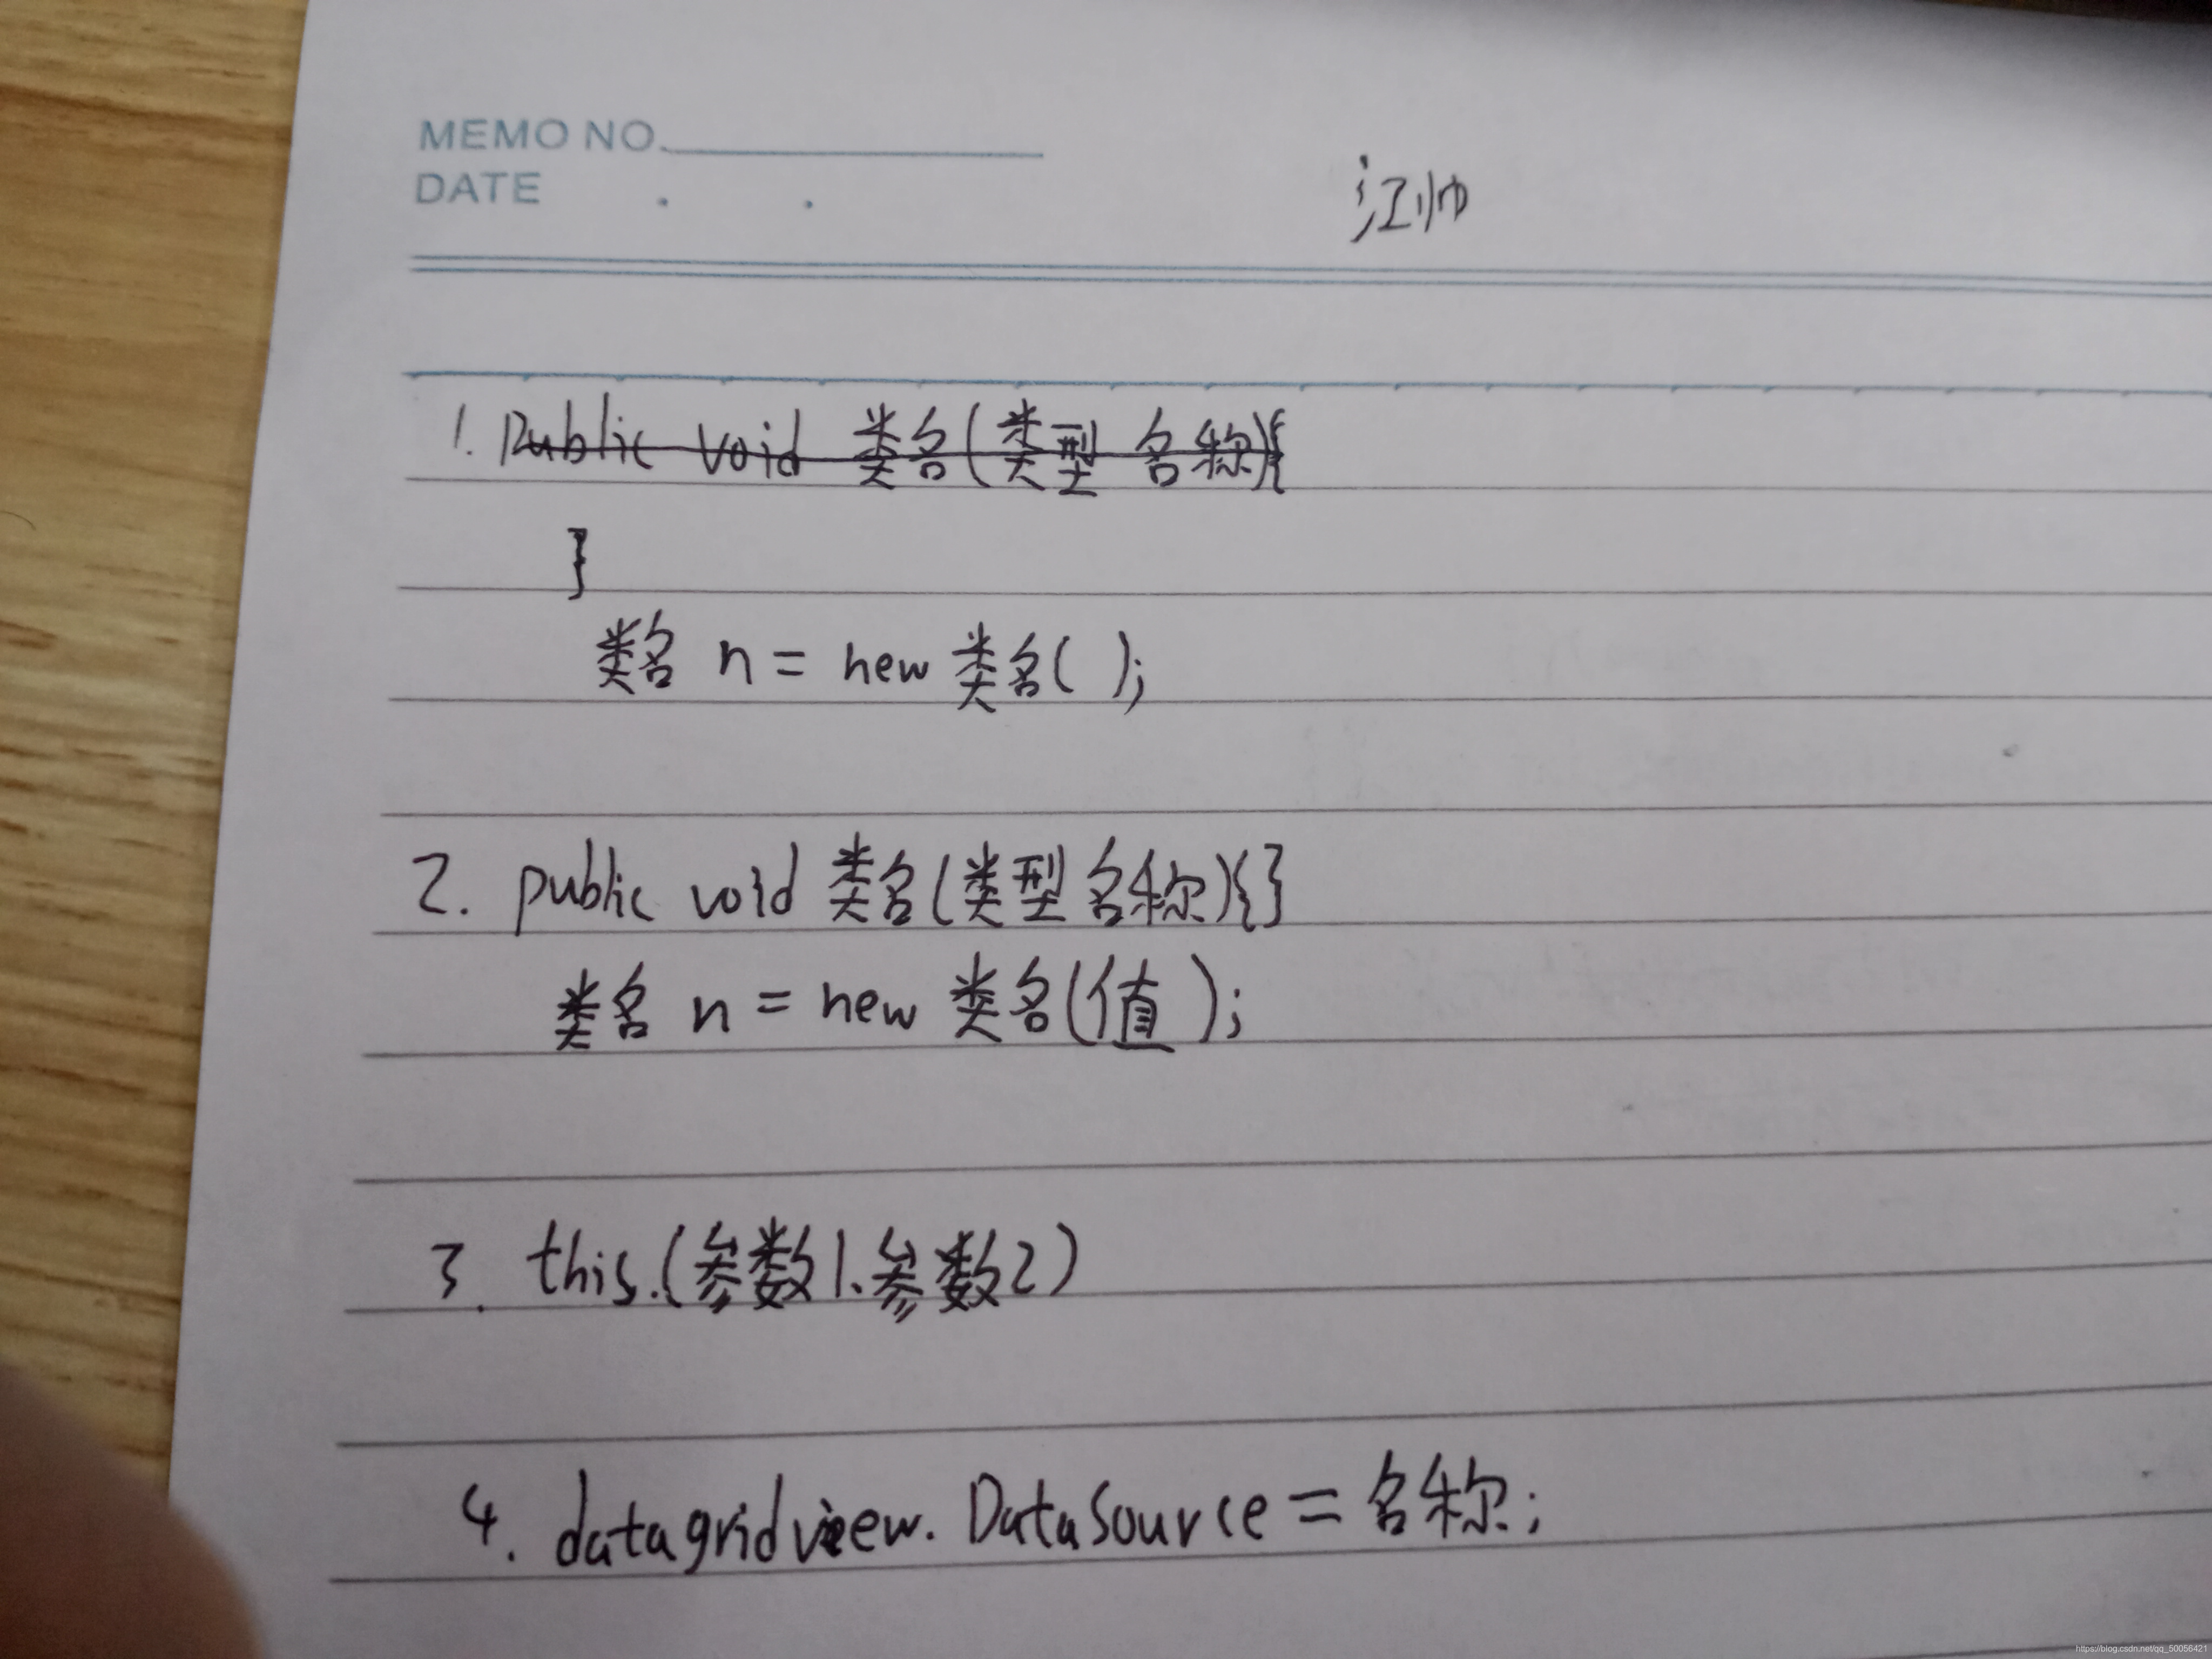 MEMO NO.
DATE . .
江帅
1. Public void 类名(类型 名称){
}
类名 n = new 类名( );
2. public void 类名(类型 名称){}
类名 n = new 类名(值 );
3. this.(参数1.参数2)
4. datagridview. DataSource = 名称;
https://blog.csdn.net/qq_50056421